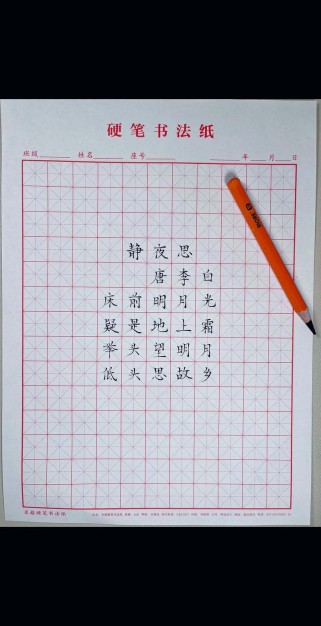 硬笔书法纸
班级 姓名 座号 年 月 日
静夜思
唐 李白
床前明月光
疑是地上霜
举头望明月
低头思故乡
硬笔书法纸